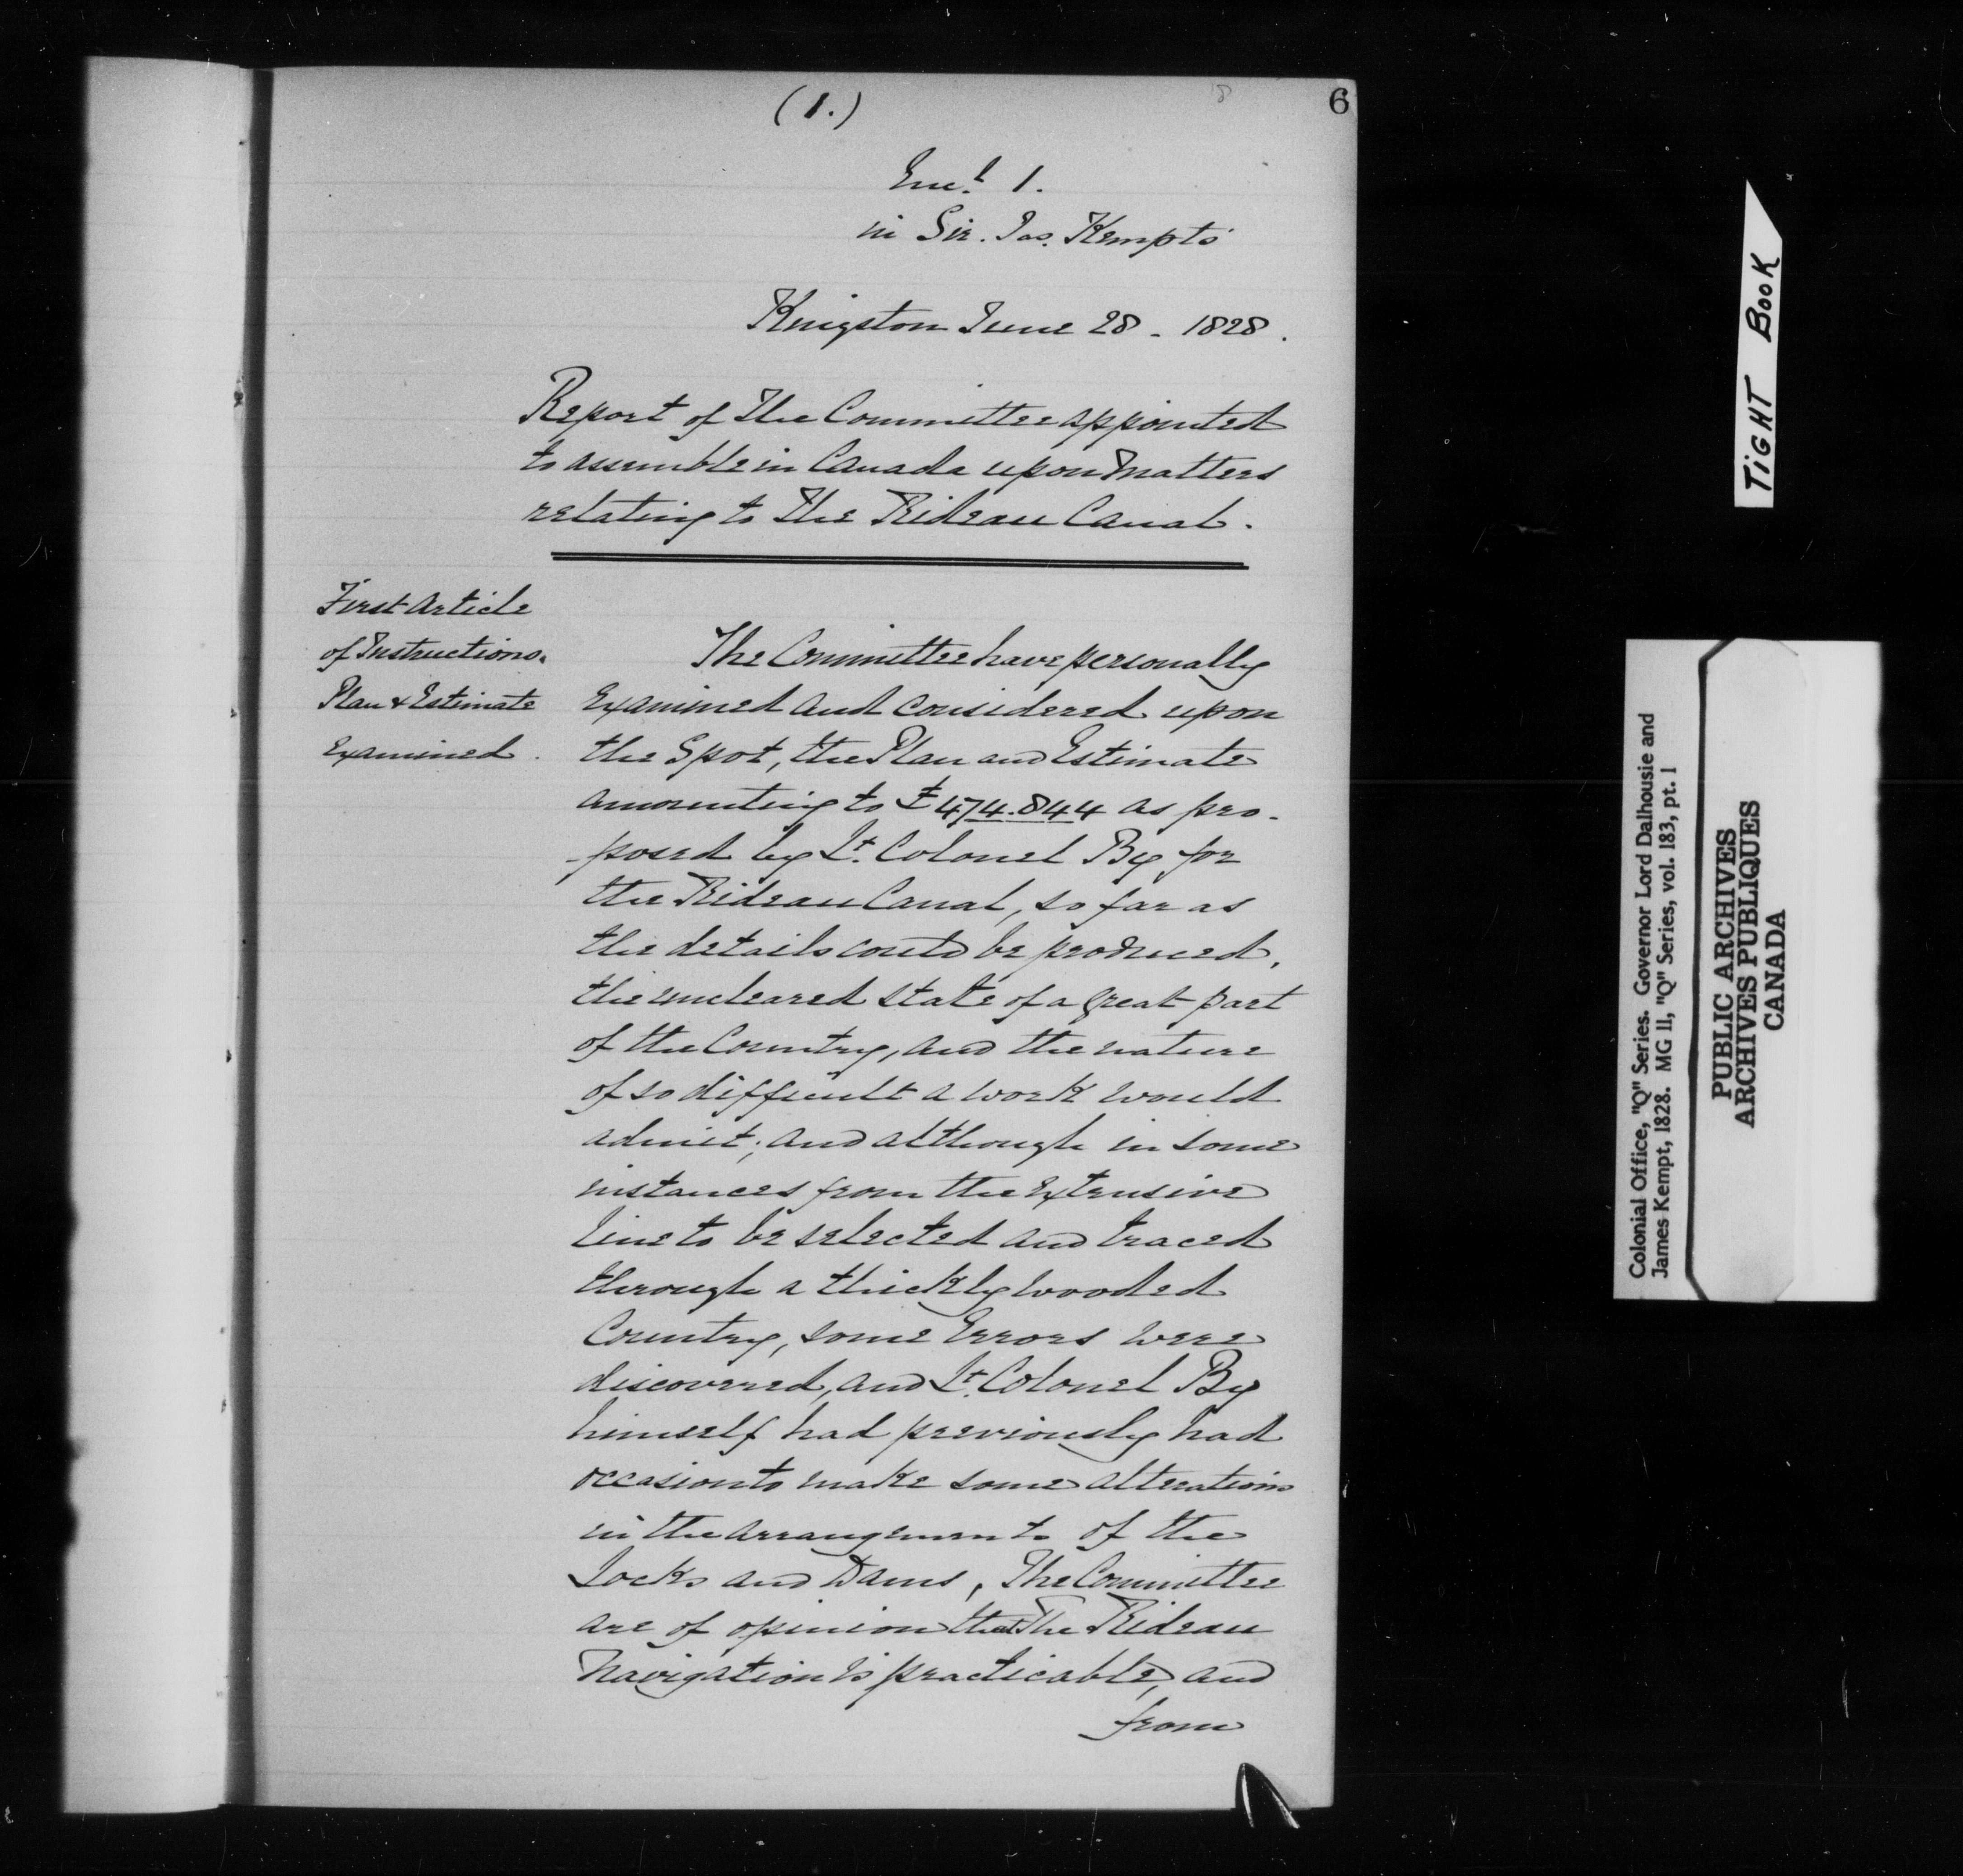 (1.)
6
Encl. 1.
in Sir. Jas. Kempts
Kingston June 28 - 1828.
Report of the Committee appointed
to assemble in Canada upon Matters
relating to the Rideau Canal.
First Article
of Instructions.
Plan & Estimate
Examined.
The Committee have personally
Examined and considered upon
the Spot, the Plan and Estimate
amounting to £474.844 as pro-
-posed by Lt. Colonel By for
the Rideau Canal, so far as
the details could be produced,
the uncleared state of a great part
of the Country, and the nature
of so difficult a work would
admit; and although in some
instances from the Extensive
line to be selected and traced
through a thickly wooded
Country, some Errors were
discovered, and Lt. Colonel By
himself had previously had
occasion to make some alterations
in the arrangements of the
Locks and Dams, The Committee
are of opinion that The Rideau
Navigation is practicable, and
from
TIGHT BOOK
Colonial Office, "Q" Series. Governor Lord Dalhousie and
James Kempt, 1828. MG 11, "Q" Series, vol. 183, pt. 1
PUBLIC ARCHIVES
ARCHIVES PUBLIQUES
CANADA